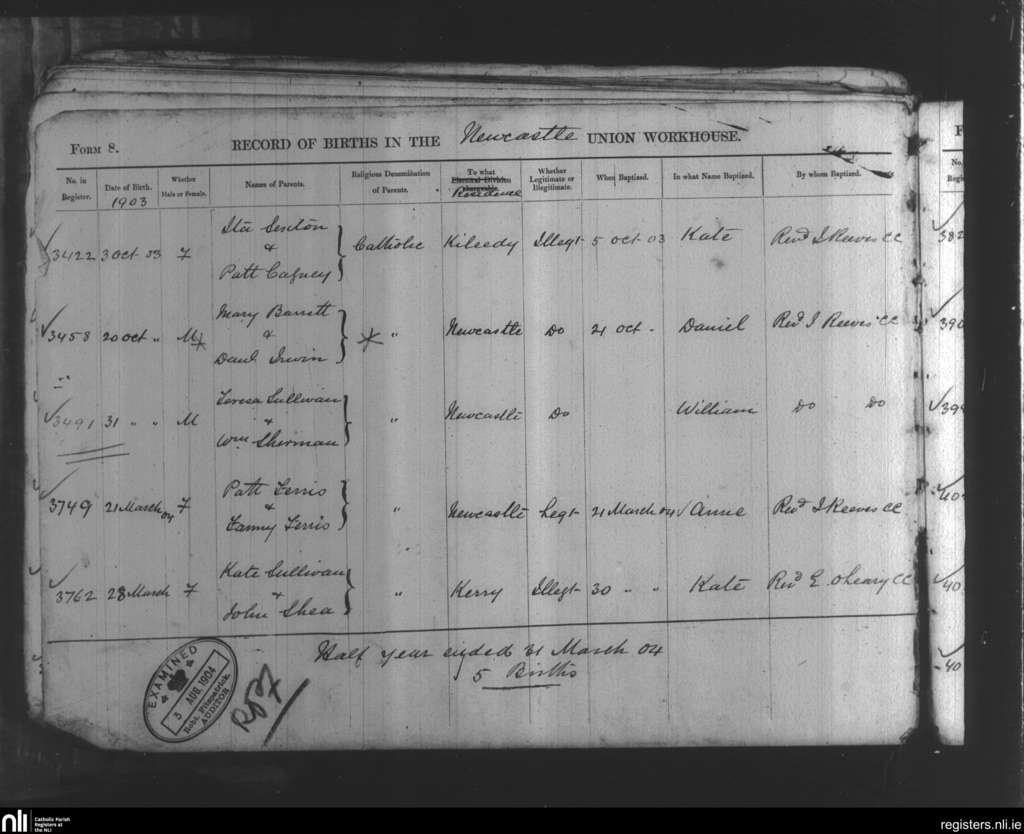 FORM 8. RECORD OF BIRTHS IN THE Newcastle UNION WORKHOUSE.
No. in Register. Date of Birth. 1903 Whether Male or Female. Names of Parents. Religious Denomination of Parents. To what Electoral Division chargeable. Residence Whether Legitimate or Illegitimate. When Baptized. In what Name Baptized. By whom Baptized.
Ita Sexton
&
3422 3 Oct 03 F Catholic Kileedy Illegt 5 Oct 03 Kate Revd J Reeves CC
Patt Cagney
Mary Barrett
&
3458 20 Oct " M " Newcastle Do 21 Oct - Daniel Revd J Reeves CC
Danl Irwin
Teresa Sullivan
&
3491 31 " " M " Newcastle Do William Do Do
Wm Sherman
Patt Ferris
&
3749 21 March 04 F " Newcastle Legt 21 March 04 Annie Revd J Reeves CC
Fanny Ferris
Kate Sullivan
&
3762 28 March F " Kerry Illegt 30 " " Kate Revd E O'Leary CC
John Shea
Half year ended 31 March 04
5 Births
EXAMINED
5 AUG. 1904
Robt. Fitzpatrick
AUDITOR
RPF
F
No.
Regi
382
390
399
40
40
40
nli Catholic Parish
Registers at
the NLI
registers.nli.ie